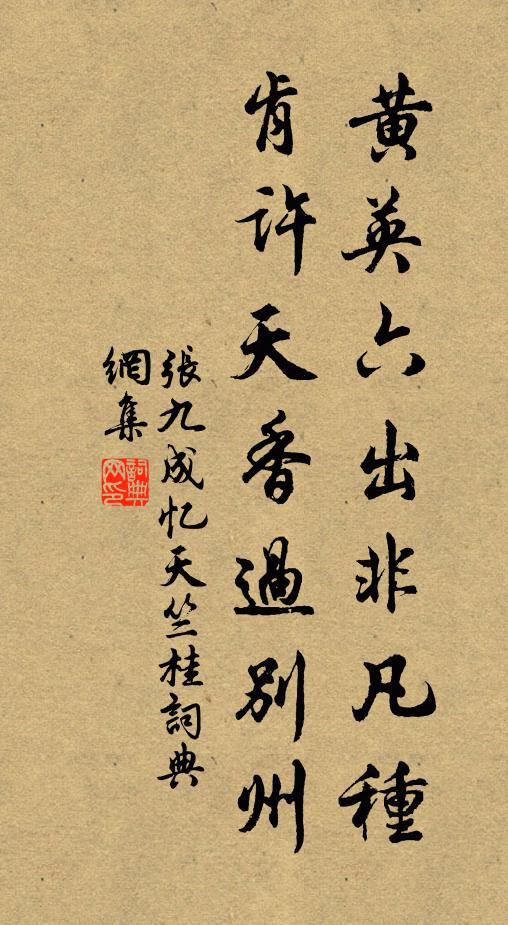 黄英六出非凡種
肯許天香過別州
張九成忆天竺桂詞典
網集
詞典網印